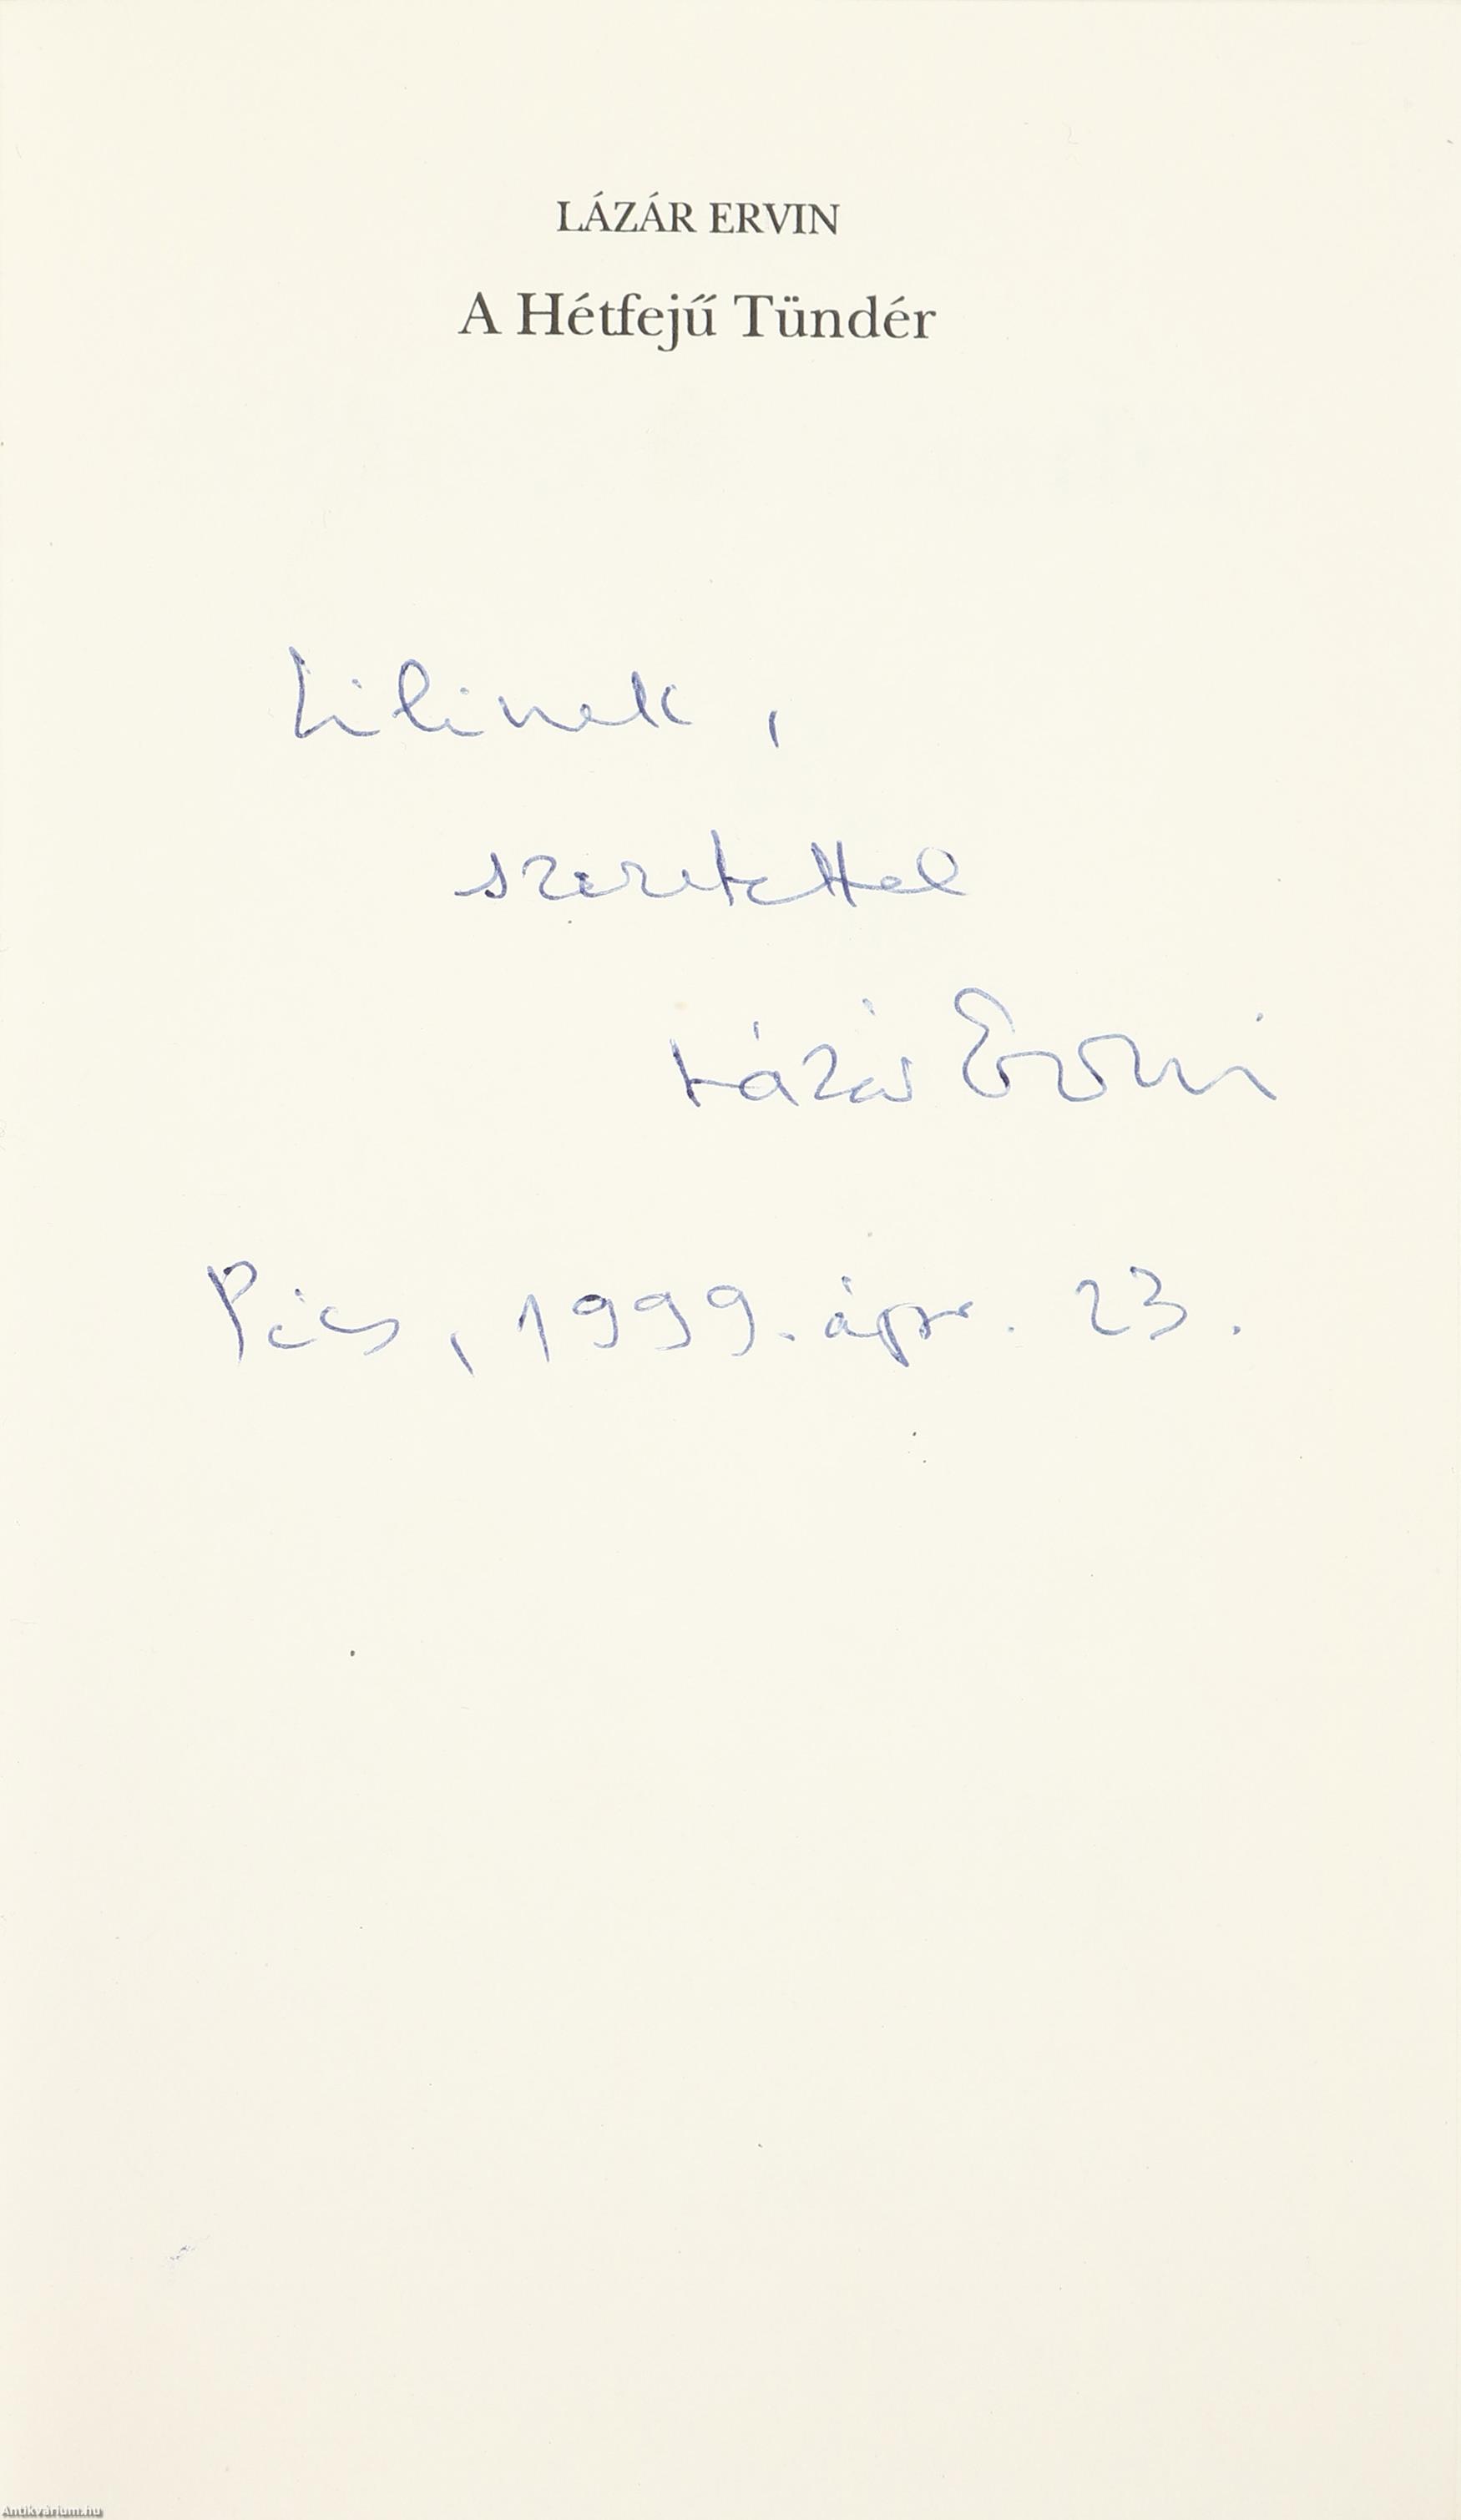 LÁZÁR ERVIN
A Hétfejű Tündér
Lilinek,
szeretettel
Lázár Ervin
Pécs, 1999. ápr. 23.
Antikvárium.hu